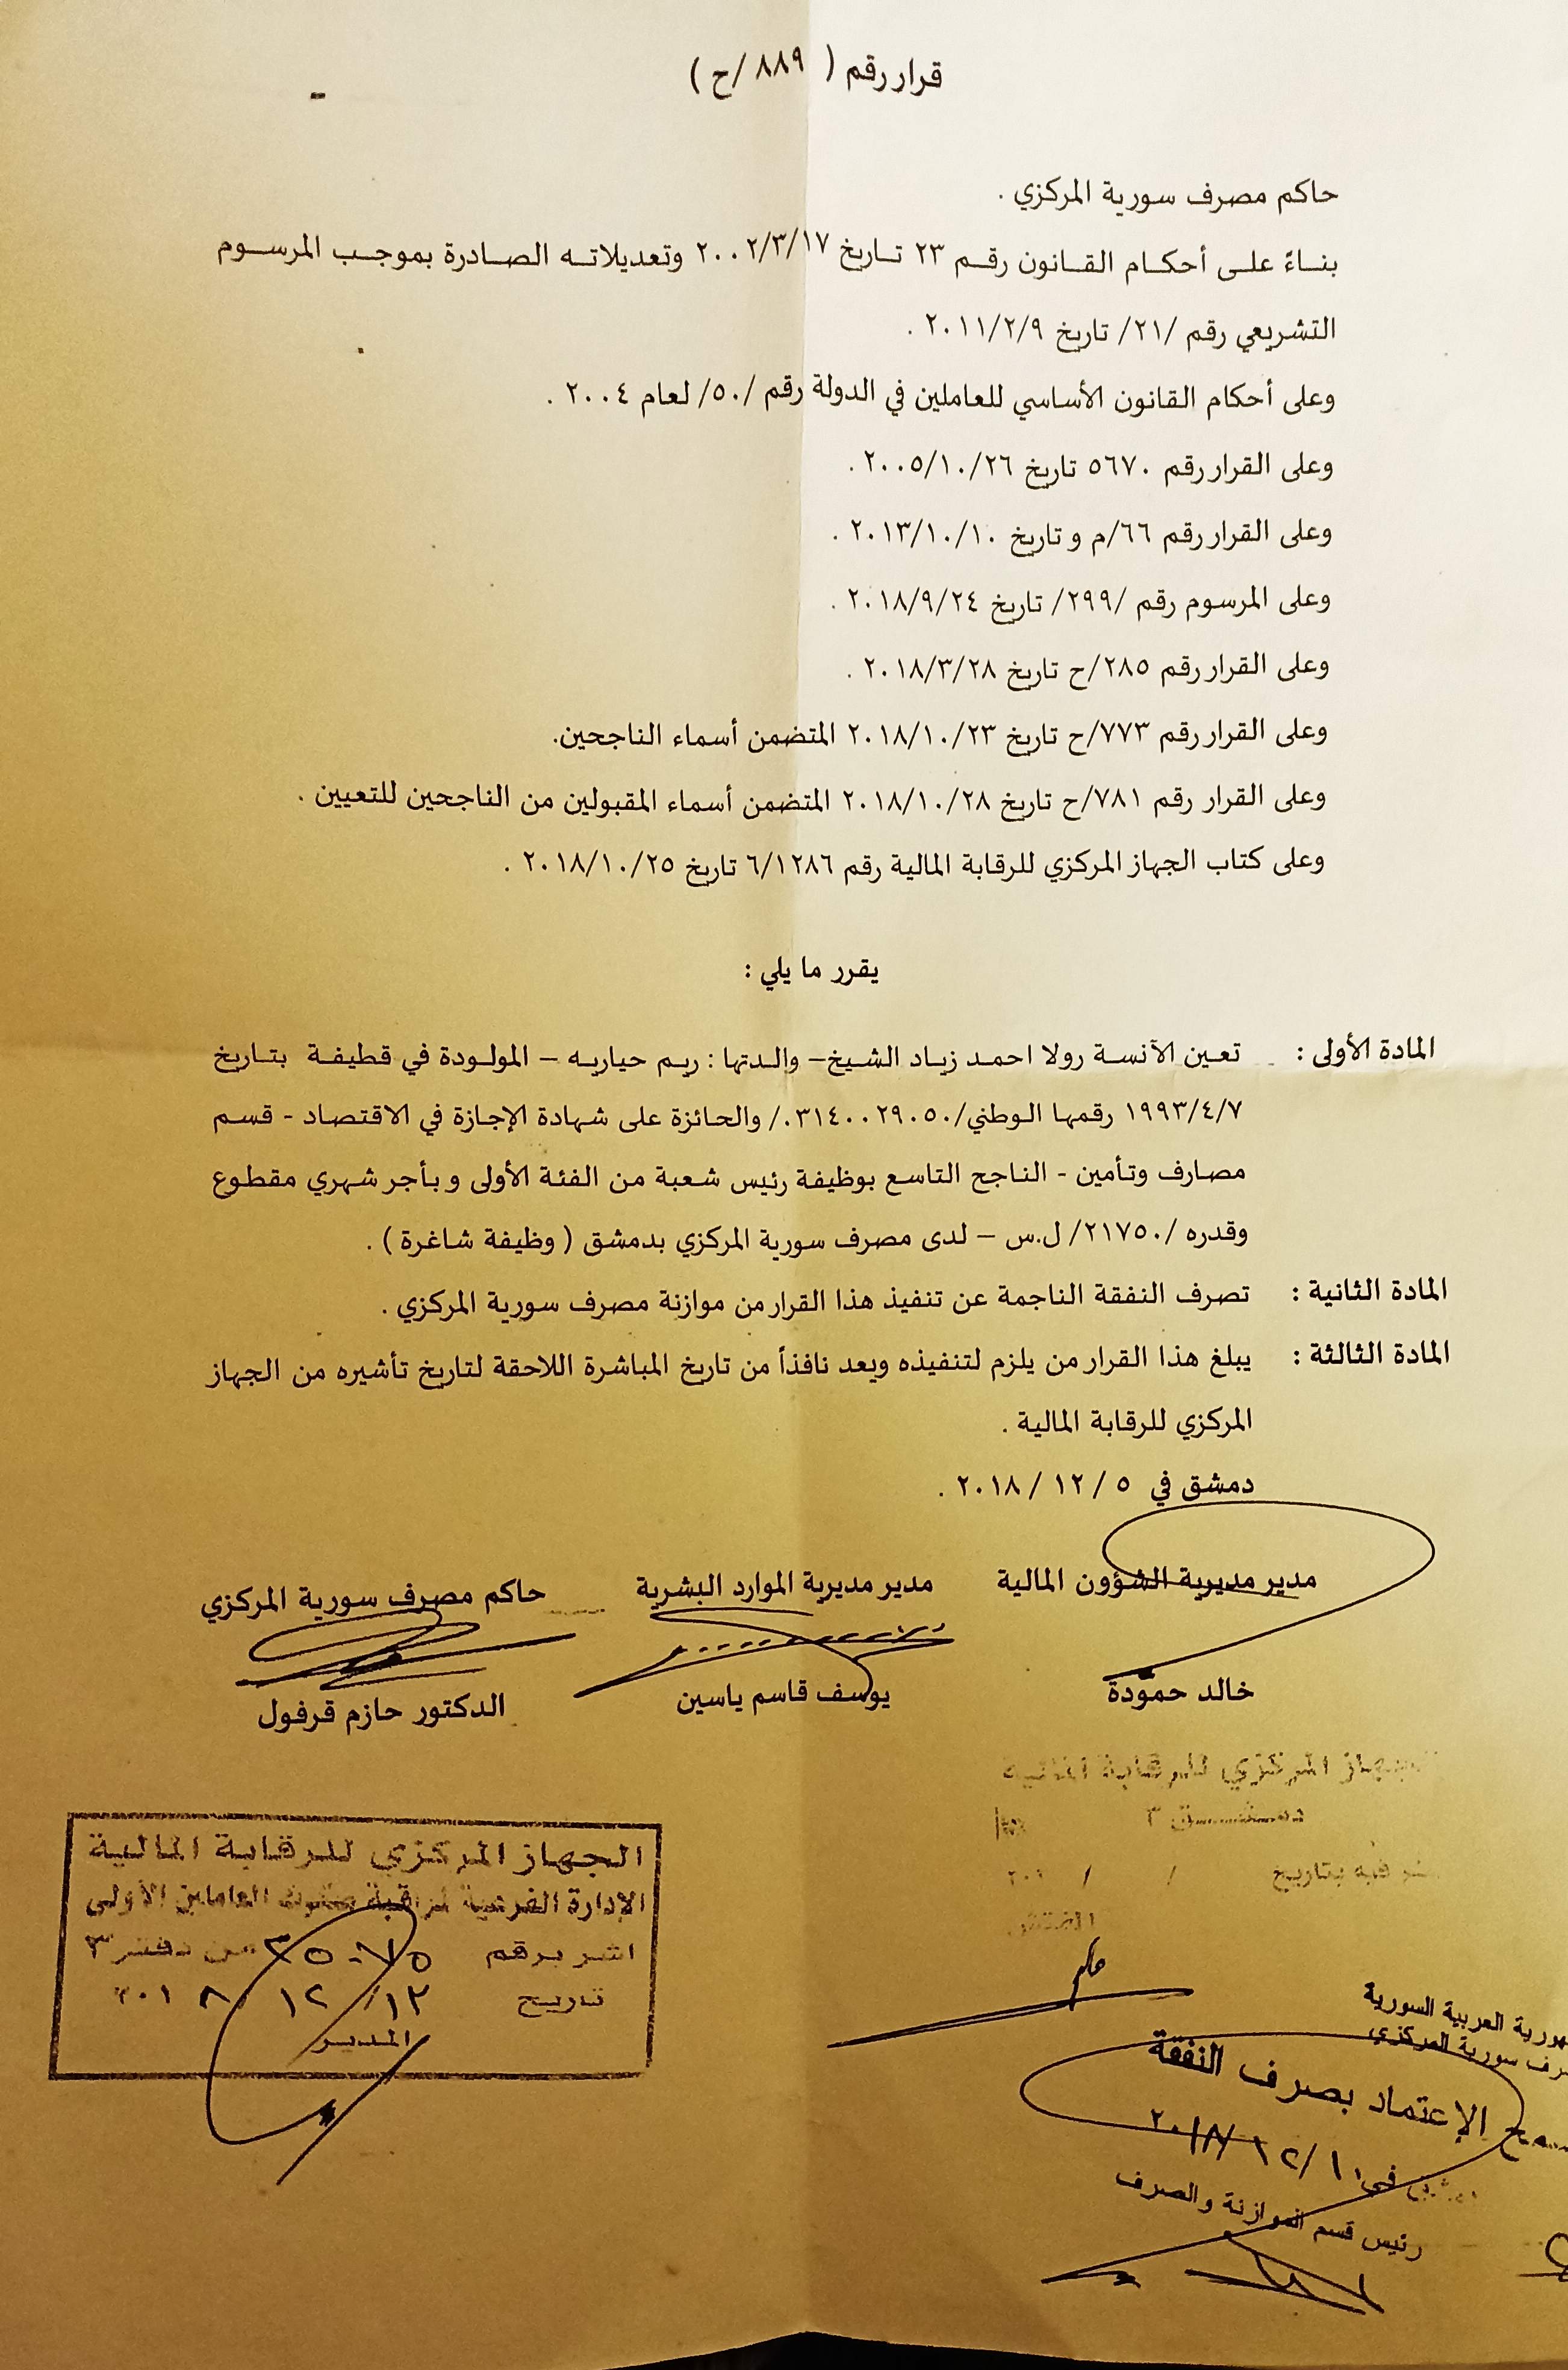 قرار رقم ( ٨٨٩ /ح )
حاكم مصرف سورية المركزي .
بناءً على أحكام القانون رقم ٢٣ تاريخ ٢٠٠٢/٣/١٧ وتعديلاته الصادرة بموجب المرسوم
التشريعي رقم /٢١/ تاريخ ٢٠١١/٢/٩ .
وعلى أحكام القانون الأساسي للعاملين في الدولة رقم /٥٠/ لعام ٢٠٠٤ .
وعلى القرار رقم ٥٦٧٠ تاريخ ٢٠٠٥/١٠/٢٦ .
وعلى القرار رقم ٦٦/م و تاريخ ٢٠١٣/١٠/١٠ .
وعلى المرسوم رقم /٢٩٩/ تاريخ ٢٠١٨/٩/٢٤ .
وعلى القرار رقم ٢٨٥/ح تاريخ ٢٠١٨/٣/٢٨ .
وعلى القرار رقم ٧٧٣/ح تاريخ ٢٠١٨/١٠/٢٣ المتضمن أسماء الناجحين.
وعلى القرار رقم ٧٨١/ح تاريخ ٢٠١٨/١٠/٢٨ المتضمن أسماء المقبولين من الناجحين للتعيين .
وعلى كتاب الجهاز المركزي للرقابة المالية رقم ٦/١٢٨٦ تاريخ ٢٠١٨/١٠/٢٥ .
يقرر ما يلي :
المادة الأولى : تعين الآنسة رولا احمد زياد الشيخ– والدتها : ريم حياريه – المولودة في قطيفة بتاريخ
١٩٩٣/٤/٧ رقمها الوطني/٠٣١٤٠٠٢٩٠٥٠/ والحائزة على شهادة الإجازة في الاقتصاد - قسم
مصارف وتأمين - الناجح التاسع بوظيفة رئيس شعبة من الفئة الأولى و بأجر شهري مقطوع
وقدره /٢١٧٥٠/ ل.س – لدى مصرف سورية المركزي بدمشق ( وظيفة شاغرة ) .
المادة الثانية : تصرف النفقة الناجمة عن تنفيذ هذا القرار من موازنة مصرف سورية المركزي .
المادة الثالثة : يبلغ هذا القرار من يلزم لتنفيذه ويعد نافذاً من تاريخ المباشرة اللاحقة لتاريخ تأشيره من الجهاز
المركزي للرقابة المالية .
دمشق في ٥ / ١٢ / ٢٠١٨ .
مدير مديرية الشؤون المالية مدير مديرية الموارد البشرية حاكم مصرف سورية المركزي
خالد حمودة يوسف قاسم ياسين الدكتور حازم قرفول
الجهاز المركزي للرقابة المالية
دمشق ٣
بتاريخ / / ٢٠١
المفتش
الجهاز المركزي للرقابة المالية
الإدارة الفرعية لمراقبة العاملين الأولى
اشر برقم من دفتر ٣
تاريخ ١٢/ ١٢/ ٢٠١٨
المدير
العربية السورية
سورية المركزي
الإعتماد بصرف النفقة
في ١٠/١٢/٢٠١٨
رئيس قسم الموازنة والصرف